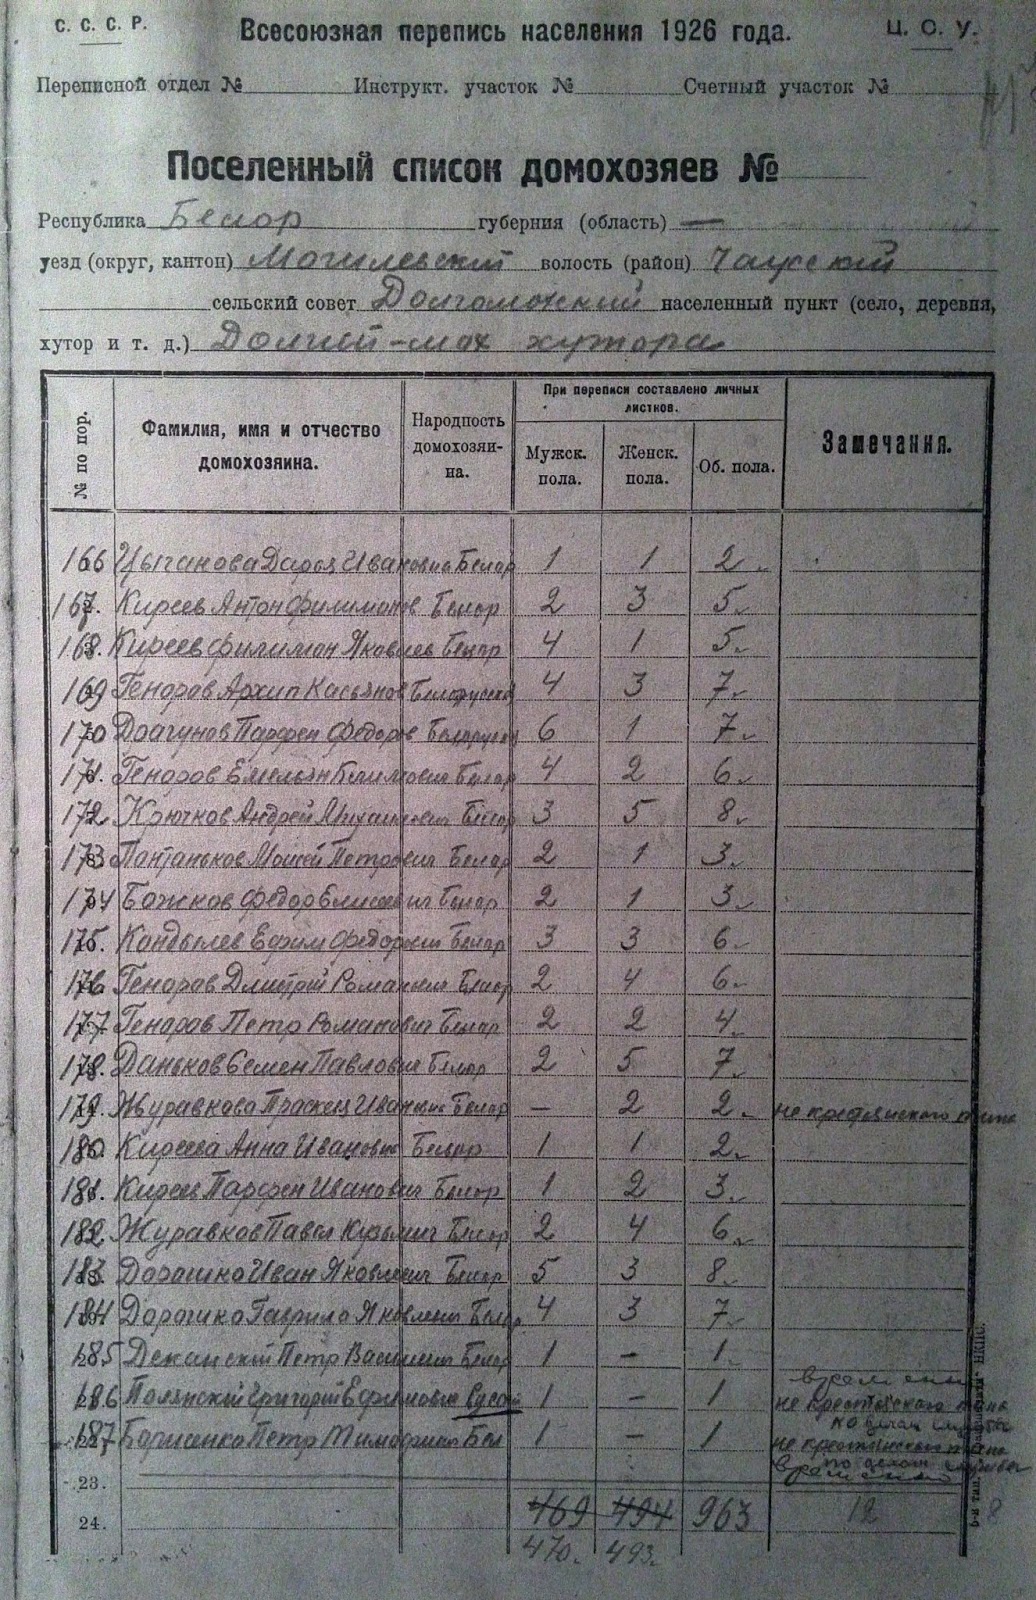 С. С. С. Р.
Всесоюзная перепись населения 1926 года.
Ц. С. У.
Переписной отдел № Инструкт. участок № Счетный участок №
Поселенный список домохозяев №
Республика Белор губерния (область) —
уезд (округ, кантон) Могилевский волость (район) Чаусский
сельский совет Долгомохский населенный пункт (село, деревня,
хутор и т. д.) Долгий-мох хутора
№ по пор.
Фамилия, имя и отчество домохозяина.
Народность домохозяи-на.
При переписи составлено личных листков.
Мужск. пола.
Женск. пола.
Об. пола.
Замечания.
166 Цыганова Дарья Ивановна Белор 1 1 2
167. Киреев Антон Филимонов Белор 2 3 5
168. Киреев Филимон Яковлев Белор 4 1 5
169 Генаров Архип Касьянов Белорусский 4 3 7
170 Драгунов Парфен Федоров 6 1 7
171. Генаров Емельян Белор 4 2 6
172 Крючков Андрей Михайлович Белор 3 5 8
173 Моисей Петрович Белор 2 1 3
174 Божков Федор Белор 2 1 3
175. Кандылев Ефим Федорович Белор 3 3 6
176 Генаров Дмитрий Романович Белор 2 4 6
177 Генаров Петр Романович Белор 2 2 4
178. Даньков Семен Павлович Белор 2 5 7
179. Журавкова Ивановна Белор — 2 2 не крестьянского
180. Киреева Анна Ивановна Белор 1 1 2
181. Киреев Парфен Иванович Белор 1 2 3
182. Журавков Павел Кузьмич Белор 2 4 6
183. Дорашко Иван Яковлевич Белор 5 3 8
184 Дорашко Гаврила Яковлевич Белор 4 3 7
185 Деканский Петр Васильевич Белор 1 — 1
186 Полянский Григорий Ефимович 1 — 1 не крестьянского типа по делам службы
187 Петр Бел 1 — 1 не крестьянского типа по делам службы временно
23.
24. 469 494 963 12 8
470. 493.